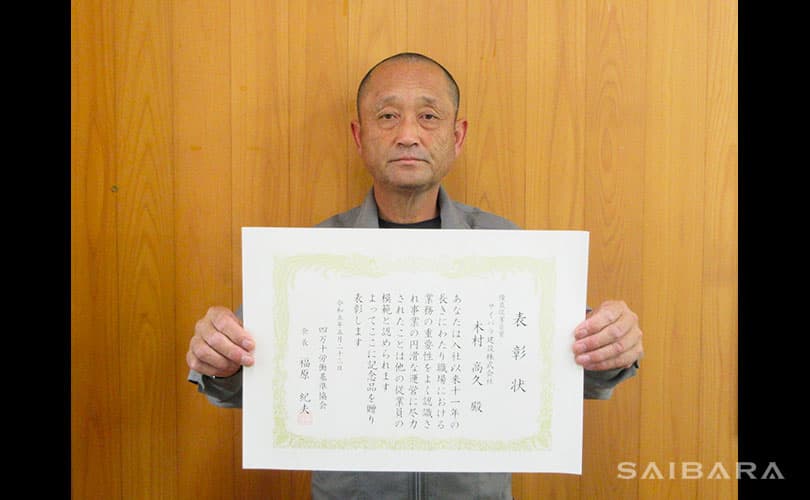 表彰状
優良従業員賞
サイバラ建設株式会社
木村 高久 殿
あなたは入社以来十一年の
長きにわたり職場における
業務の重要性をよく認識さ
れ事業の円滑な運営に尽力
されたことは他の従業員の
模範と認められます
よってここに記念品を贈り
表彰します
令和五年五月二十二日
四万十労働基準協会
会長 福原 紀夫
SAIBARA